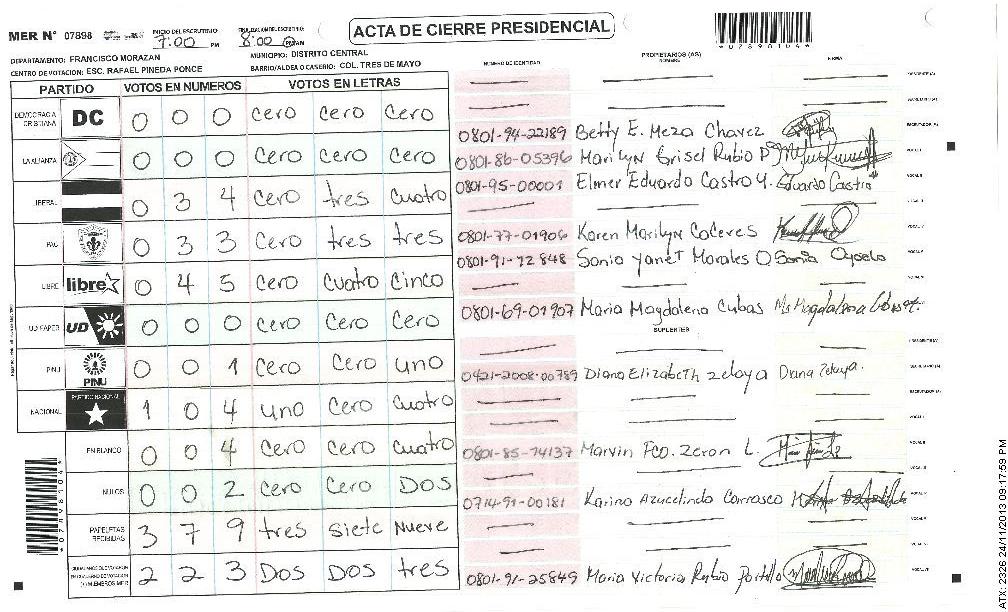 MER N° 07898
INICIO DEL ESCRUTINIO:
7:00 PM
8:00 PM
ACTA DE CIERRE PRESIDENCIAL
*07898104*
DEPARTAMENTO: FRANCISCO MORAZAN
MUNICIPIO: DISTRITO CENTRAL
CENTRO DE VOTACION: ESC. RAFAEL PINEDA PONCE
BARRIO/ALDEA O CASERIO: COL. TRES DE MAYO
PARTIDO VOTOS EN NUMEROS VOTOS EN LETRAS
DEMOCRACIA CRISTIANA DC 0 0 0 Cero Cero Cero
LA ALIANZA 0 0 0 Cero Cero Cero
LIBERAL 0 3 4 Cero tres Cuatro
PAC 0 3 3 Cero tres tres
LIBRE libre 0 4 5 Cero Cuatro Cinco
UD FAPER UD 0 0 0 Cero Cero Cero
PINU PINU 0 0 1 Cero Cero uno
NACIONAL PARTIDO NACIONAL 1 0 4 uno Cero Cuatro
EN BLANCO 0 0 4 Cero Cero Cuatro
NULOS 0 0 2 Cero Cero Dos
PAPELETAS RECIBIDAS 3 7 9 tres Siete Nueve
2 2 3 Dos Dos tres
NUMERO DE IDENTIDAD
PROPIETARIOS (AS)
NOMBRE
FIRMA
0801-94-22189 Betty E. Meza Chavez
0801-86-05396 Marilyn Grisel Rubio P
0801-95-00001 Elmer Eduardo Castro Y. Eduardo Castro
0801-77-01906 Karen Marilyn Caceres
0801-91-12848 Sonia Yanet Morales O Sonia
0801-69-01907 Maria Magdalena Cubas Ma Magdalena
SUPLENTES
0421-2008-00789 Diana Elizabeth Zelaya Diana Zelaya.
0801-85-14137 Marvin Fco. Zeron L.
0714-91-00181 Karina Azucelinda Carrasco
0801-91-25849 Maria Victoria Rubio Portillo
*07898104*
ATX 2326 24/11/2013 09:17:59 PM